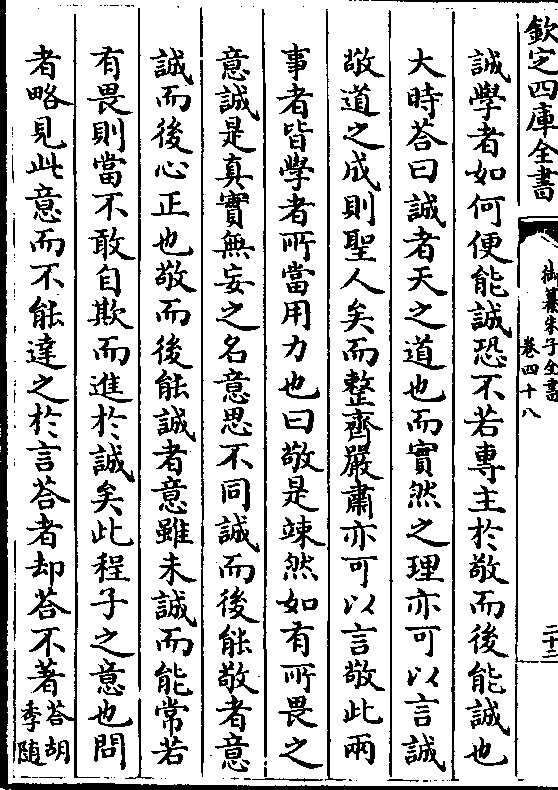 欽定四庫全書
御纂朱子全書
卷四十八
二十二
誠學者如何便能誠恐不若專主於敬而後能誠也
大時荅曰誠者天之道也而實然之理亦可以言誠
敬道之成則聖人矣而整齊嚴肅亦可以言敬此兩
事者皆學者所當用力也曰敬是竦然如有所畏之
意誠是真實無妄之名意思不同誠而後能敬者意
誠而後心正也敬而後能誠者意雖未誠而能常若
有畏則當不敢自欺而進於誠矣此程子之意也問
者略見此意而不能達之於言荅者却荅不著荅胡季隨